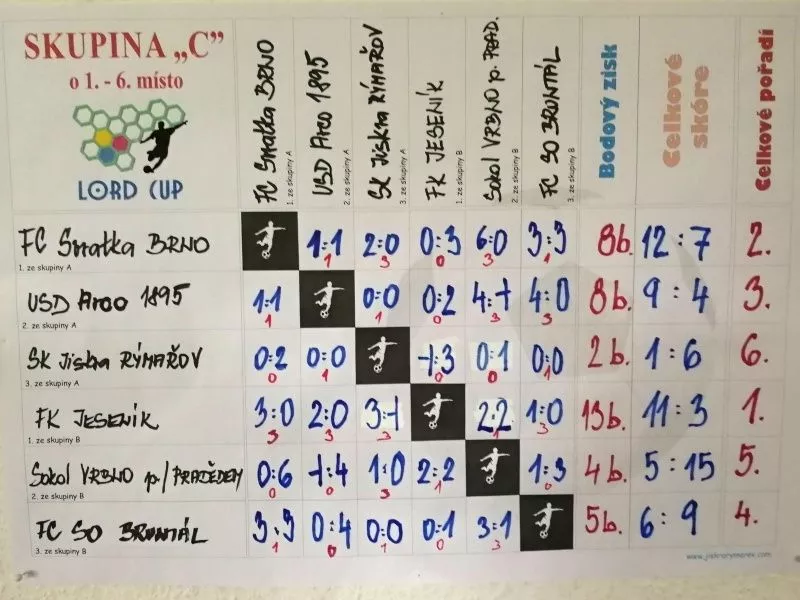 SKUPINA „C”
o 1. - 6. místo
LORD CUP
FC Smatka BRNO
1. ze skupiny A
USD Arco 1895
2. ze skupiny A
SK Jiskra RÝMAŘOV
3. ze skupiny A
FK JESENÍK
1. ze skupiny B
Sokol VRBNO p. PRAD.
2. ze skupiny B
FC SO BRUNTÁL
3. ze skupiny B
Bodový zisk
Celkové skóre
Celkové pořadí
FC Smatka BRNO 1:1 2:0 0:3 6:0 3:3 8b. 12:7 2.
1. ze skupiny A 1 3 0 3 1
USD Arco 1895 1:1 0:0 0:2 4:1 4:0 8b. 9:4 3.
2. ze skupiny A 1 1 0 3 3
SK Jiskra RÝMAŘOV 0:2 0:0 1:3 0:1 0:0 2b. 1:6 6.
3. ze skupiny A 0 1 0 0 1
FK JESENÍK 3:0 2:0 3:1 2:2 1:0 13b. 11:3 1.
1. ze skupiny B 3 3 3 1 3
Sokol VRBNO p/PRADĚDEM 0:6 1:4 1:0 2:2 1:3 4b. 5:15 5.
2. ze skupiny B 0 0 3 1 0
FC SO BRUNTÁL 3:3 0:4 0:0 0:1 3:1 5b. 6:9 4.
3. ze skupiny B 1 0 1 0 3
www.jiskrarymarov.com